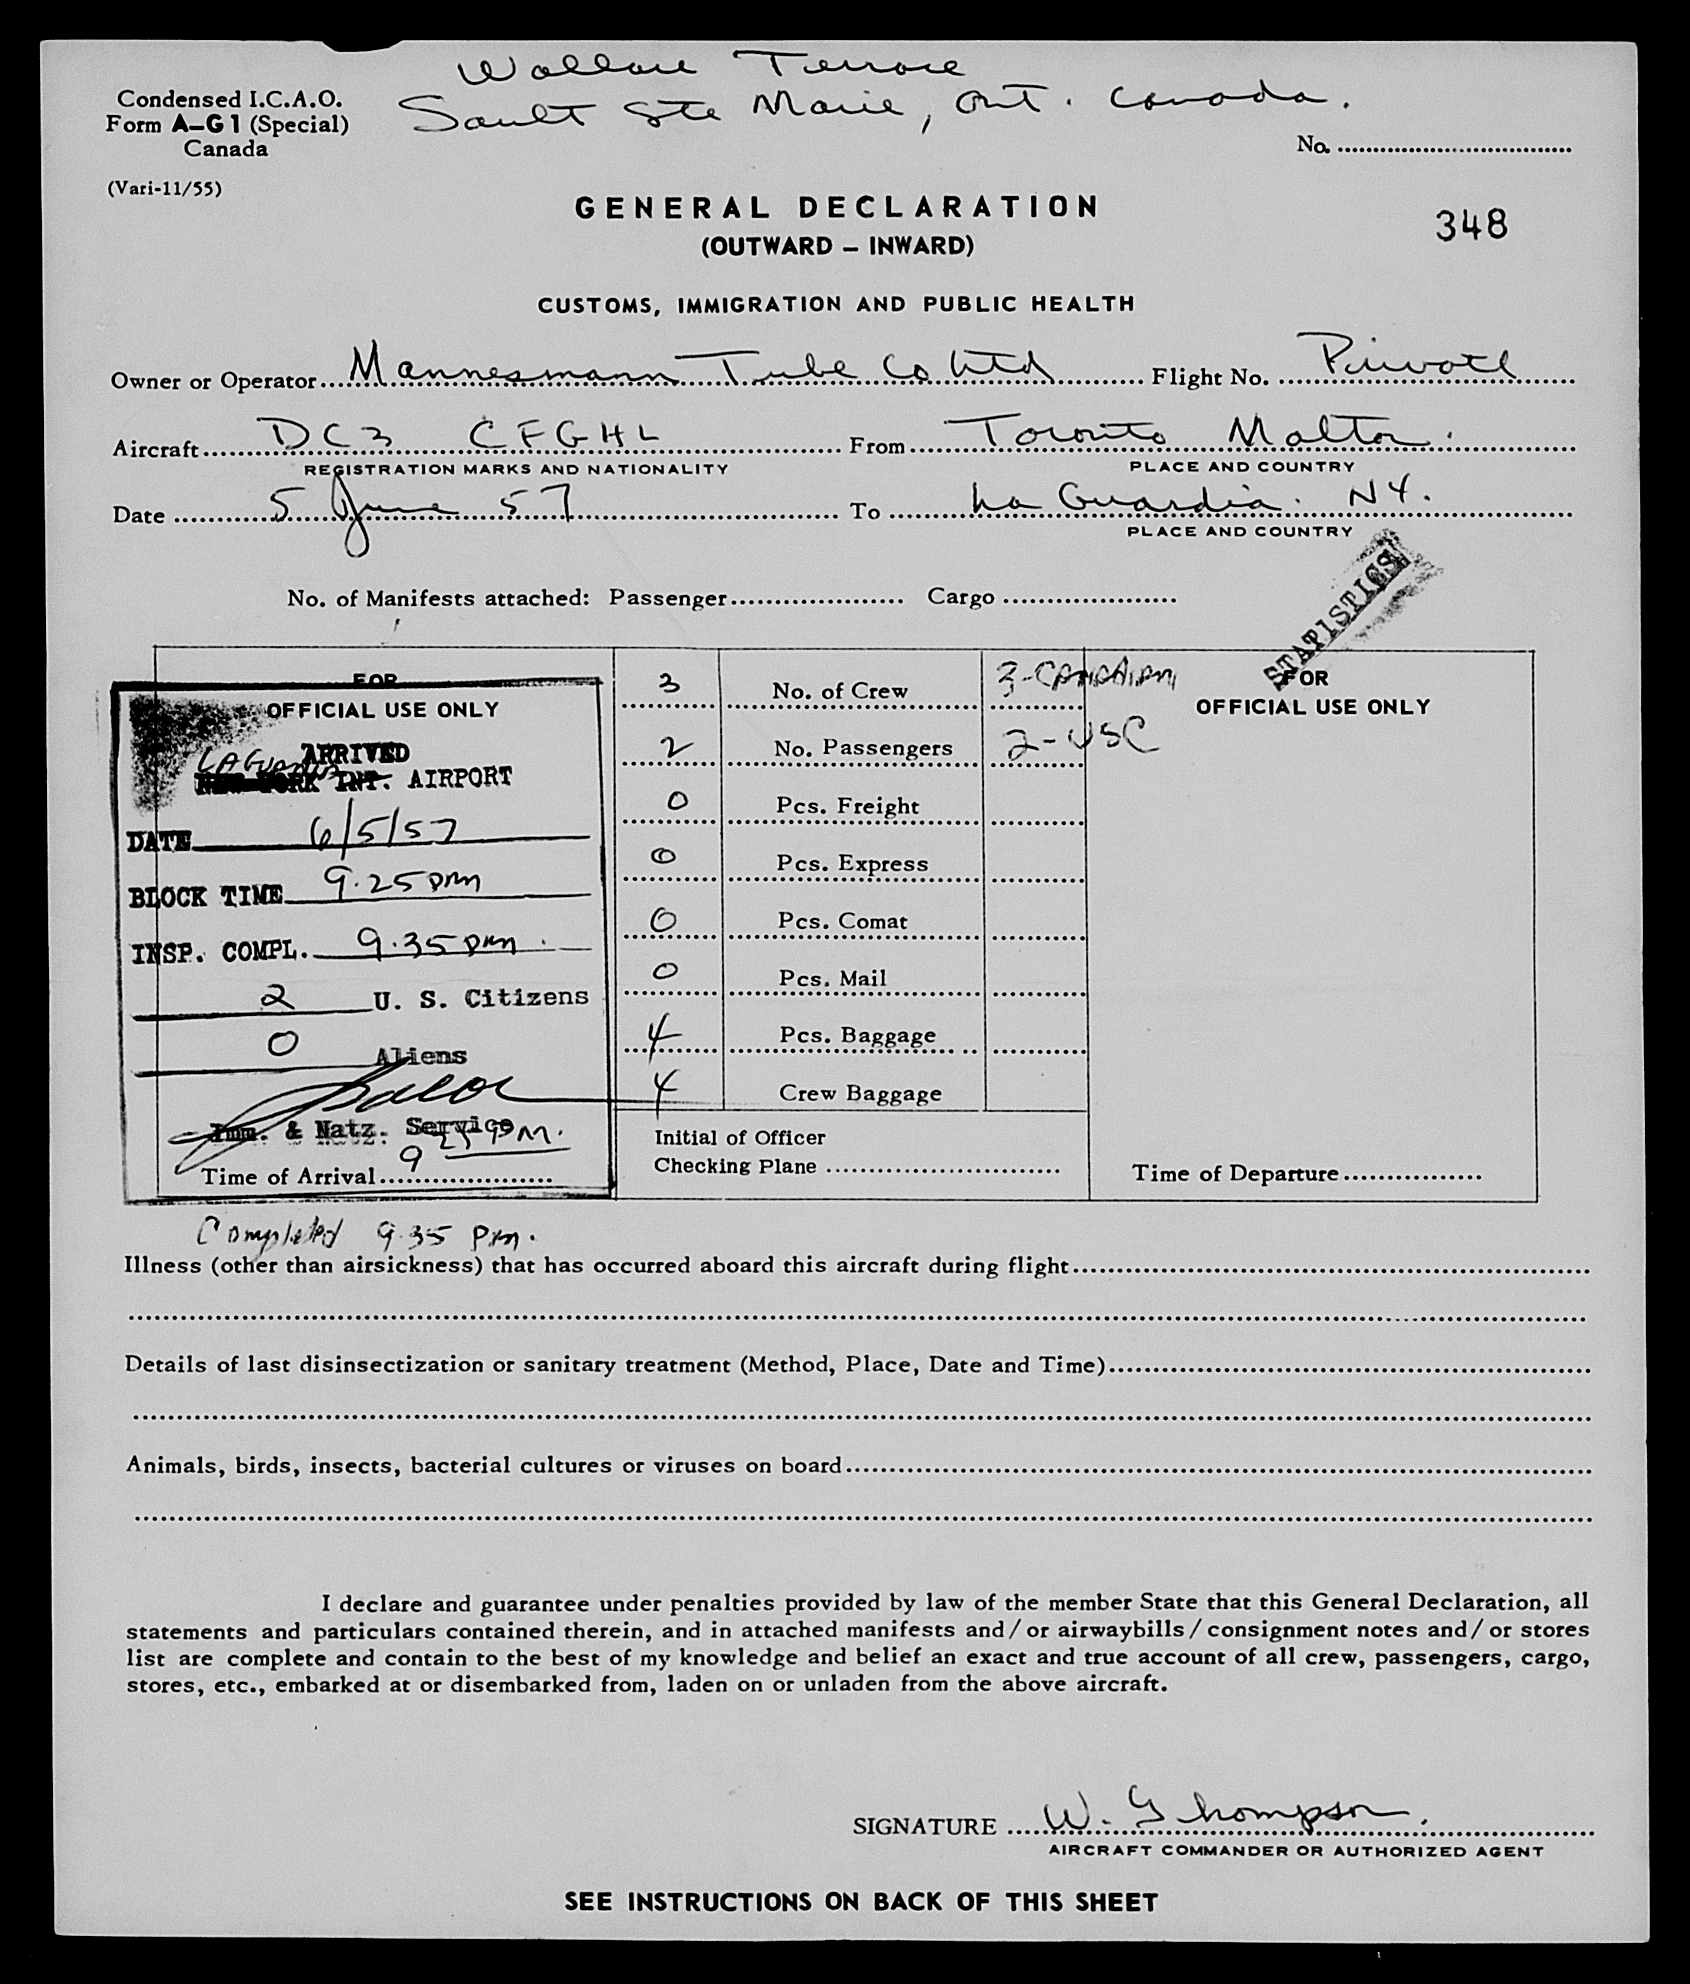 Wallace Terrace
Sault Ste Marie, Ont. Canada.
Condensed I.C.A.O.
Form A-G1 (Special)
Canada
No. ................................
(Vari-11/55)
GENERAL DECLARATION
348
(OUTWARD – INWARD)
CUSTOMS, IMMIGRATION AND PUBLIC HEALTH
Owner or Operator Mannesmann Tube Co Ltd Flight No. Private
Aircraft DC3 CFGHL From Toronto Malton.
REGISTRATION MARKS AND NATIONALITY PLACE AND COUNTRY
Date 5 June 57 To La Guardia. NY.
PLACE AND COUNTRY
STATISTICS
No. of Manifests attached: Passenger.................... Cargo ....................
FOR
OFFICIAL USE ONLY
ARRIVED
LAGUARDIA
NEW YORK INT. AIRPORT
DATE 6/5/57
BLOCK TIME 9.25 pm
INSP. COMPL. 9.35 pm.
2 U. S. Citizens
0 Aliens
Imm. & Natz. Service
Time of Arrival 9 25 PM.
3 No. of Crew 3-CANADIAN
2 No. Passengers 2-USC
0 Pcs. Freight
0 Pcs. Express
0 Pcs. Comat
0 Pcs. Mail
4 Pcs. Baggage
4 Crew Baggage
Initial of Officer
Checking Plane ...........................
FOR
OFFICIAL USE ONLY
Time of Departure................
Completed 9.35 Pm.
Illness (other than airsickness) that has occurred aboard this aircraft during flight
Details of last disinsectization or sanitary treatment (Method, Place, Date and Time)
Animals, birds, insects, bacterial cultures or viruses on board
I declare and guarantee under penalties provided by law of the member State that this General Declaration, all
statements and particulars contained therein, and in attached manifests and/or airwaybills/consignment notes and/or stores
list are complete and contain to the best of my knowledge and belief an exact and true account of all crew, passengers, cargo,
stores, etc., embarked at or disembarked from, laden on or unladen from the above aircraft.
SIGNATURE W. Thompson.
AIRCRAFT COMMANDER OR AUTHORIZED AGENT
SEE INSTRUCTIONS ON BACK OF THIS SHEET